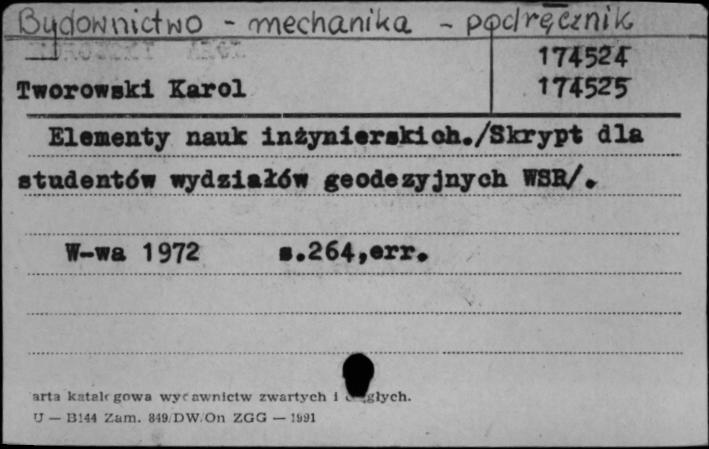 Budownictwo - mechanika - podręcznik
174524
Tworowski Karol 174525
Elementy nauk inżynierskich./Skrypt dla
studentów wydziałów geodezyjnych WSR/.
W-wa 1972 s.264,err.
arta katalogowa wydawnictw zwartych i ciągłych.
U — B144 Zam. 849/DW/On ZGG — 1991